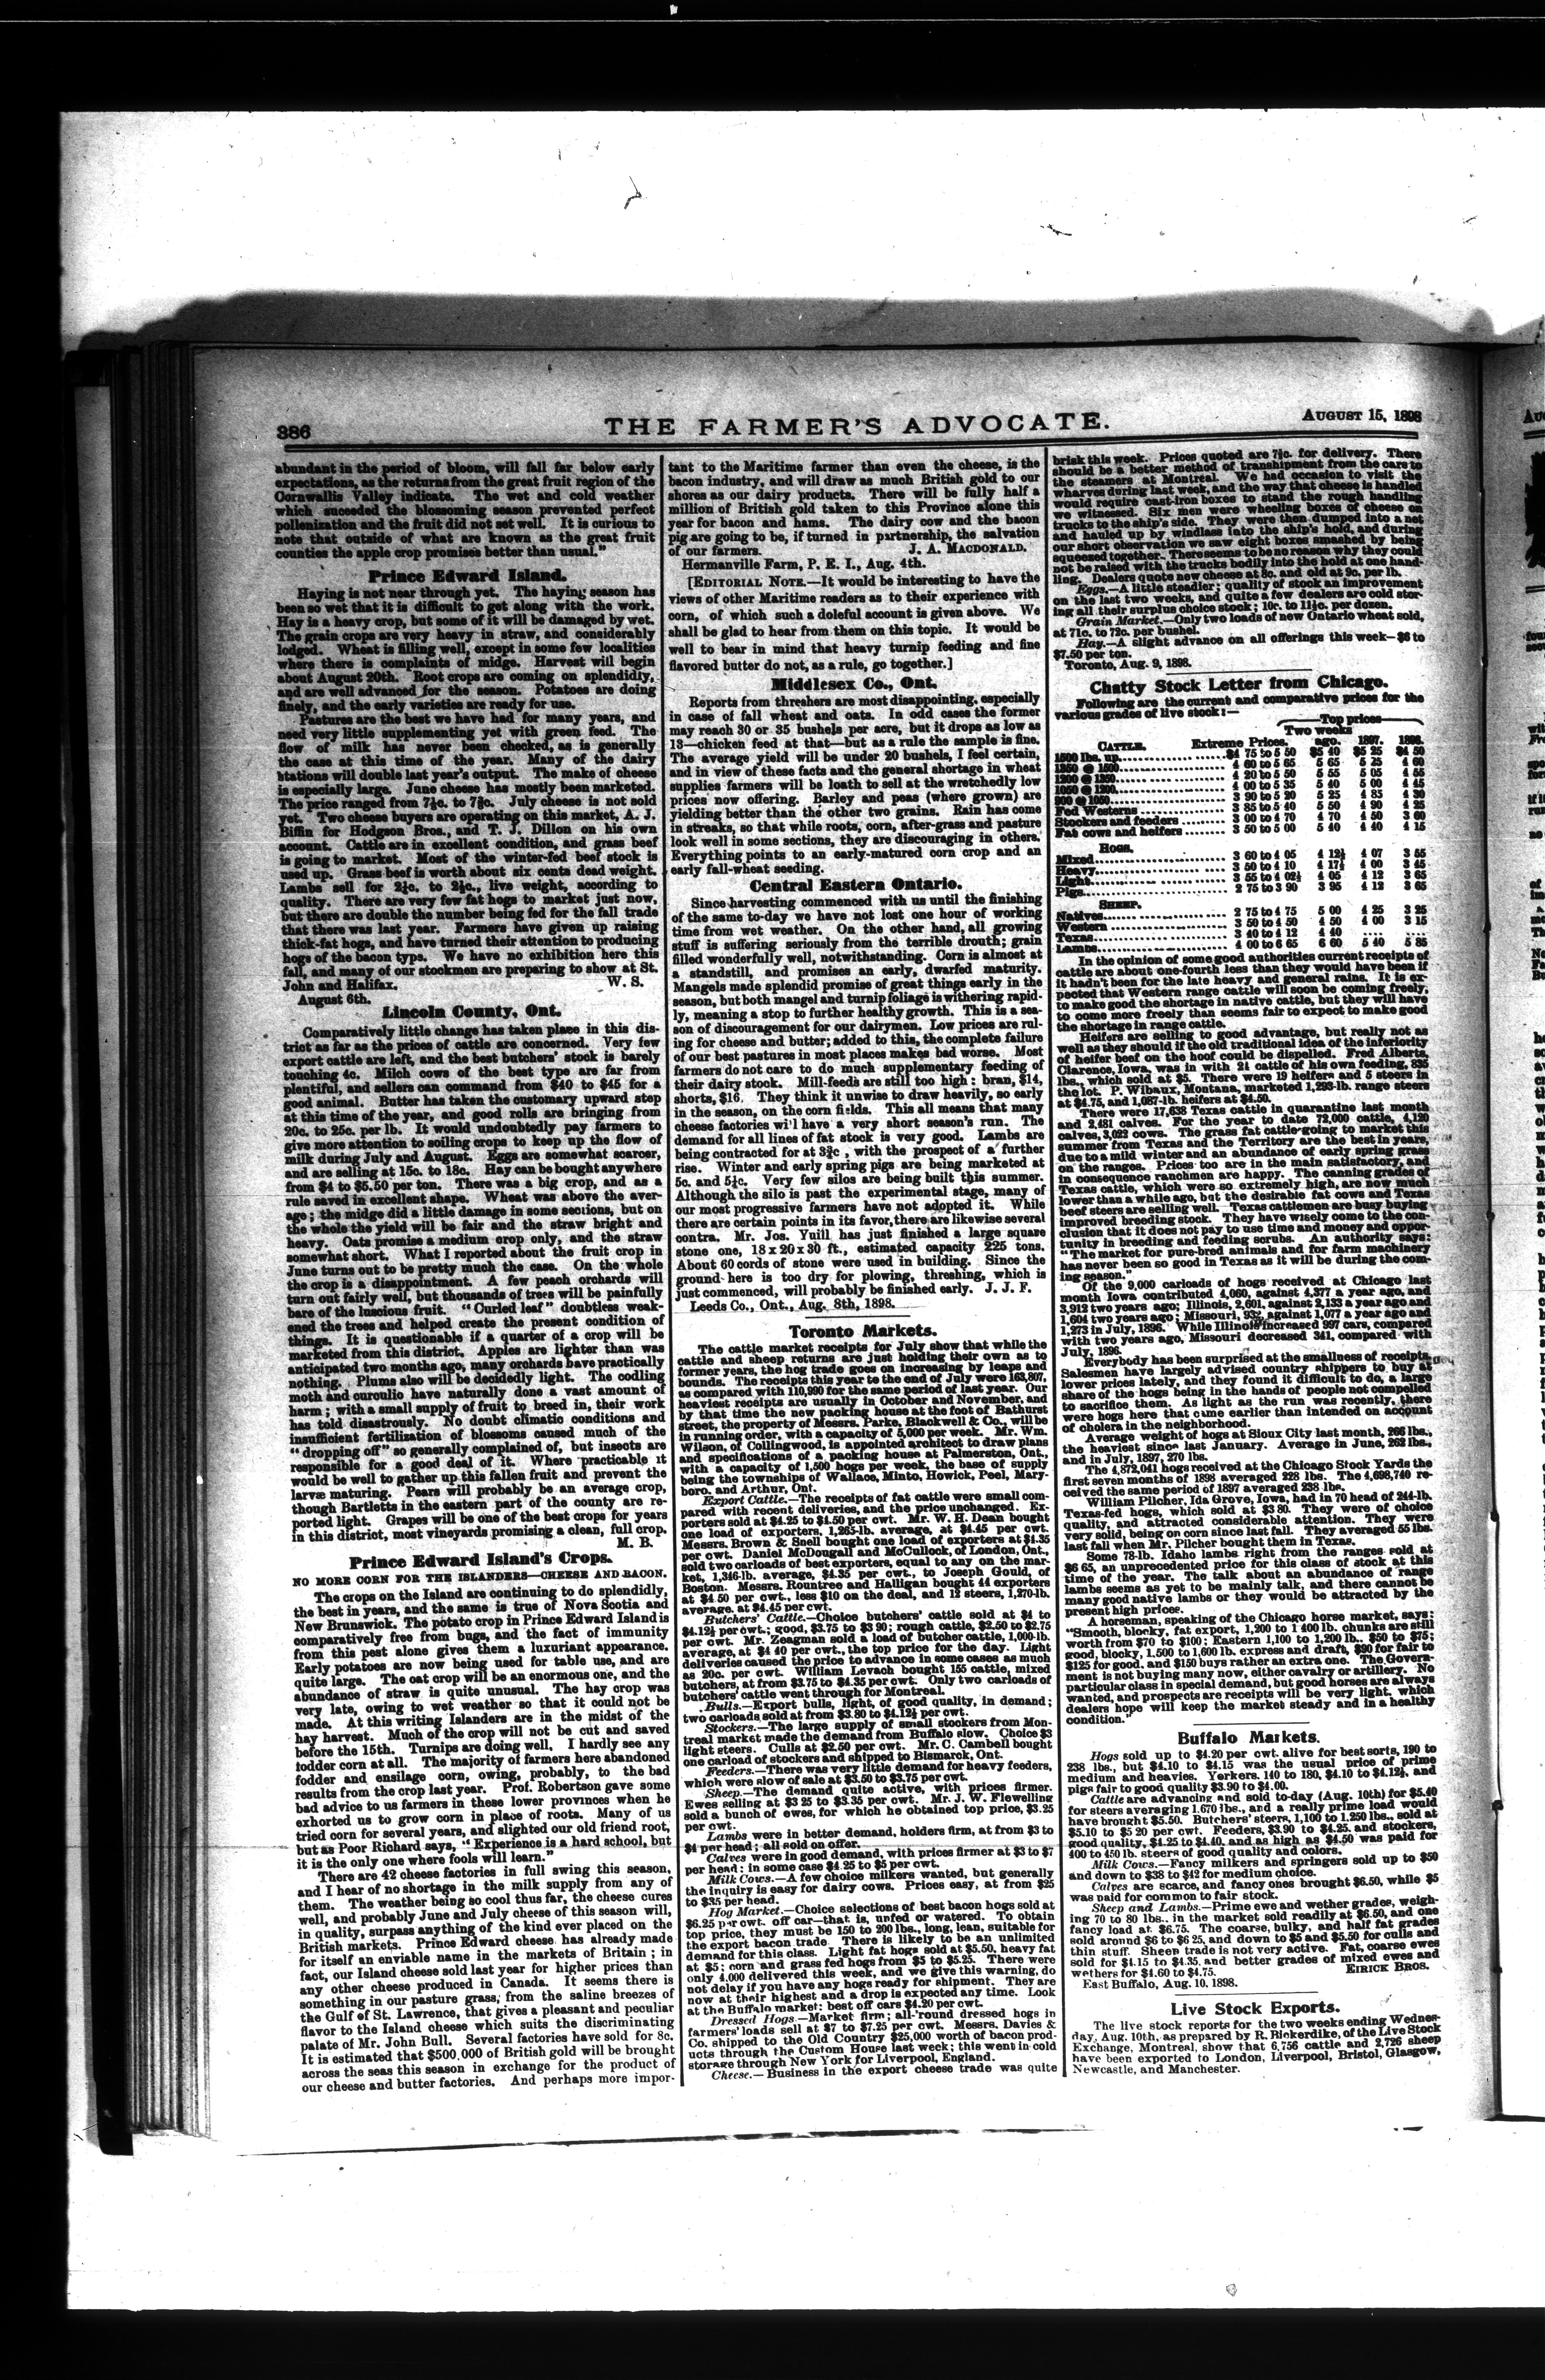 386
THE FARMER'S ADVOCATE.
AUGUST 15, 1898
abundant in the period of bloom, will fall far below early
expectations, as the returns from the great fruit region of the
Cornwallis Valley indicate. The wet and cold weather
which suceeded the blossoming season prevented perfect
pollenization and the fruit did not set well. It is curious to
note that outside of what are known as the great fruit
counties the apple crop promises better than usual."
Prince Edward Island.
Haying is not near through yet. The haying season has
been so wet that it is difficult to get along with the work.
Hay is a heavy crop, but some of it will be damaged by wet.
The grain crops are very heavy in straw, and considerably
lodged. Wheat is filling well, except in some few localities
where there is complaints of midge. Harvest will begin
about August 20th. Root crops are coming on splendidly,
and are well advanced for the season. Potatoes are doing
finely, and the early varieties are ready for use.
Pastures are the best we have had for many years, and
need very little supplementing yet with green feed. The
flow of milk has never been checked, as is generally
the case at this time of the year. Many of the dairy
stations will double last year's output. The make of cheese
is especially large. June cheese has mostly been marketed.
The price ranged from 7¼c. to 7⅜c. July cheese is not sold
yet. Two cheese buyers are operating on this market, A. J.
Biffin for Hodgson Bros., and T. J. Dillon on his own
account. Cattle are in excellent condition, and grass beef
is going to market. Most of the winter-fed beef stock is
used up. Grass beef is worth about six cents dead weight.
Lambs sell for 2¼c. to 2½c., live weight, according to
quality. There are very few fat hogs to market just now,
but there are double the number being fed for the fall trade
that there was last year. Farmers have given up raising
thick-fat hogs, and have turned their attention to producing
hogs of the bacon type. We have no exhibition here this
fall, and many of our stockmen are preparing to show at St.
John and Halifax. W. S.
August 6th.
Lincoln County, Ont.
Comparatively little change has taken place in this dis-
trict as far as the prices of cattle are concerned. Very few
export cattle are left, and the best butchers' stock is barely
touching 4c. Milch cows of the best type are far from
plentiful, and sellers can command from $40 to $45 for a
good animal. Butter has taken the customary upward step
at this time of the year, and good rolls are bringing from
20c. to 25c. per lb. It would undoubtedly pay farmers to
give more attention to soiling crops to keep up the flow of
milk during July and August. Eggs are somewhat scarcer,
and are selling at 15c. to 18c. Hay can be bought anywhere
from $4 to $5.50 per ton. There was a big crop, and as a
rule saved in excellent shape. Wheat was above the aver-
age; the midge did a little damage in some sections, but on
the whole the yield will be fair and the straw bright and
heavy. Oats promise a medium crop only, and the straw
somewhat short. What I reported about the fruit crop in
June turns out to be pretty much the case. On the whole
the crop is a disappointment. A few peach orchards will
turn out fairly well, but thousands of trees will be painfully
bare of the luscious fruit. "Curled leaf" doubtless weak-
ened the trees and helped create the present condition of
things. It is questionable if a quarter of a crop will be
marketed from this district. Apples are lighter than was
anticipated two months ago, many orchards have practically
nothing. Plums also will be decidedly light. The codling
moth and curculio have naturally done a vast amount of
harm; with a small supply of fruit to breed in, their work
has told disastrously. No doubt climatic conditions and
insufficient fertilization of blossoms caused much of the
"dropping off" so generally complained of, but insects are
responsible for a good deal of it. Where practicable it
would be well to gather up this fallen fruit and prevent the
larvæ maturing. Pears will probably be an average crop,
though Bartletts in the eastern part of the county are re-
ported light. Grapes will be one of the best crops for years
in this district, most vineyards promising a clean, full crop.
M. B.
Prince Edward Island's Crops.
NO MORE CORN FOR THE ISLANDERS—CHEESE AND BACON.
The crops on the Island are continuing to do splendidly,
the best in years, and the same is true of Nova Scotia and
New Brunswick. The potato crop in Prince Edward Island is
comparatively free from bugs, and the fact of immunity
from this pest alone gives them a luxuriant appearance.
Early potatoes are now being used for table use, and are
quite large. The oat crop will be an enormous one, and the
abundance of straw is quite unusual. The hay crop was
very late, owing to wet weather so that it could not be
made. At this writing Islanders are in the midst of the
hay harvest. Much of the crop will not be cut and saved
before the 15th. Turnips are doing well. I hardly see any
fodder corn at all. The majority of farmers here abandoned
fodder and ensilage corn, owing, probably, to the bad
results from the crop last year. Prof. Robertson gave some
bad advice to us farmers in these lower provinces when he
exhorted us to grow corn in place of roots. Many of us
tried corn for several years, and slighted our old friend root,
but as Poor Richard says, "Experience is a hard school, but
it is the only one where fools will learn."
There are 42 cheese factories in full swing this season,
and I hear of no shortage in the milk supply from any of
them. The weather being so cool thus far, the cheese cures
well, and probably June and July cheese of this season will,
in quality, surpass anything of the kind ever placed on the
British markets. Prince Edward cheese has already made
for itself an enviable name in the markets of Britain; in
fact, our Island cheese sold last year for higher prices than
any other cheese produced in Canada. It seems there is
something in our pasture grass, from the saline breezes of
the Gulf of St. Lawrence, that gives a pleasant and peculiar
flavor to the Island cheese which suits the discriminating
palate of Mr. John Bull. Several factories have sold for 8c.
It is estimated that $500,000 of British gold will be brought
across the seas this season in exchange for the product of
our cheese and butter factories. And perhaps more impor-
tant to the Maritime farmer than even the cheese, is the
bacon industry, and will draw as much British gold to our
shores as our dairy products. There will be fully half a
million of British gold taken to this Province alone this
year for bacon and hams. The dairy cow and the bacon
pig are going to be, if turned in partnership, the salvation
of our farmers. J. A. MACDONALD.
Hermanville Farm, P. E. I., Aug. 4th.
[EDITORIAL NOTE.—It would be interesting to have the
views of other Maritime readers as to their experience with
corn, of which such a doleful account is given above. We
shall be glad to hear from them on this topic. It would be
well to bear in mind that heavy turnip feeding and fine
flavored butter do not, as a rule, go together.]
Middlesex Co., Ont.
Reports from threshers are most disappointing, especially
in case of fall wheat and oats. In odd cases the former
may reach 30 or 35 bushels per acre, but it drops as low as
13—chicken feed at that—but as a rule the sample is fine.
The average yield will be under 20 bushels, I feel certain,
and in view of these facts and the general shortage in wheat
supplies farmers will be loath to sell at the wretchedly low
prices now offering. Barley and peas (where grown) are
yielding better than the other two grains. Rain has come
in streaks, so that while roots, corn, after-grass and pasture
look well in some sections, they are discouraging in others.
Everything points to an early-matured corn crop and an
early fall-wheat seeding.
Central Eastern Ontario.
Since harvesting commenced with us until the finishing
of the same to-day we have not lost one hour of working
time from wet weather. On the other hand, all growing
stuff is suffering seriously from the terrible drouth; grain
filled wonderfully well, notwithstanding. Corn is almost at
a standstill, and promises an early, dwarfed maturity.
Mangels made splendid promise of great things early in the
season, but both mangel and turnip foliage is withering rapid-
ly, meaning a stop to further healthy growth. This is a sea-
son of discouragement for our dairymen. Low prices are rul-
ing for cheese and butter; added to this, the complete failure
of our best pastures in most places makes bad worse. Most
farmers do not care to do much supplementary feeding of
their dairy stock. Mill-feeds are still too high: bran, $14,
shorts, $16. They think it unwise to draw heavily, so early
in the season, on the corn fields. This all means that many
cheese factories will have a very short season's run. The
demand for all lines of fat stock is very good. Lambs are
being contracted for at 3¾c, with the prospect of a further
rise. Winter and early spring pigs are being marketed at
5c. and 5¼c. Very few silos are being built this summer.
Although the silo is past the experimental stage, many of
our most progressive farmers have not adopted it. While
there are certain points in its favor, there are likewise several
contra. Mr. Jos. Yuill has just finished a large square
stone one, 18x20x30 ft., estimated capacity 225 tons.
About 60 cords of stone were used in building. Since the
ground here is too dry for plowing, threshing, which is
just commenced, will probably be finished early. J. J. F.
Leeds Co., Ont., Aug. 8th, 1898.
Toronto Markets.
The cattle market receipts for July show that while the
cattle and sheep returns are just holding their own as to
former years, the hog trade goes on increasing by leaps and
bounds. The receipts this year to the end of July were 163,807,
as compared with 110,990 for the same period of last year. Our
heaviest receipts are usually in October and November, and
by that time the new packing house at the foot of Bathurst
street, the property of Messrs. Parke, Blackwell & Co., will be
in running order, with a capacity of 5,000 per week. Mr. Wm.
Wilson, of Collingwood, is appointed architect to draw plans
and specifications of a packing house at Palmerston, Ont.,
with a capacity of 1,500 hogs per week, the base of supply
being the townships of Wallace, Minto, Howick, Peel, Mary-
boro, and Arthur, Ont.
Export Cattle.—The receipts of fat cattle were small com-
pared with recent deliveries, and the price unchanged. Ex-
porters sold at $4.25 to $4.50 per cwt. Mr. W. H. Dean bought
one load of exporters, 1,265-lb. average, at $4.45 per cwt.
Messrs. Brown & Snell bought one load of exporters at $4.35
per cwt. Daniel McDougall and McCullock, of London, Ont.,
sold two carloads of best exporters, equal to any on the mar-
ket, 1,346-lb. average, $4.35 per cwt., to Joseph Gould, of
Boston. Messrs. Rountree and Halligan bought 44 exporters
at $4.50 per cwt., less $10 on the deal, and 12 steers, 1,270-lb.
average, at $4.45 per cwt.
Butchers' Cattle.—Choice butchers' cattle sold at $4 to
$4.12½ per cwt.; good, $3.75 to $3 90; rough cattle, $2.50 to $2.75
per cwt. Mr. Zeagman sold a load of butcher cattle, 1,000-lb.
average, at $4 40 per cwt., the top price for the day. Light
deliveries caused the price to advance in some cases as much
as 20c. per cwt. William Levach bought 155 cattle, mixed
butchers, at from $3.75 to $4.35 per cwt. Only two carloads of
butchers' cattle went through for Montreal.
Bulls.—Export bulls, light, of good quality, in demand;
two carloads sold at from $3.80 to $4.12½ per cwt.
Stockers.—The large supply of small stockers from Mon-
treal market made the demand from Buffalo slow. Choice $3
light steers. Culls at $2.50 per cwt. Mr. C. Cambell bought
one carload of stockers and shipped to Bismarck, Ont.
Feeders.—There was very little demand for heavy feeders,
which were slow of sale at $3.50 to $3.75 per cwt.
Sheep.—The demand quite active, with prices firmer.
Ewes selling at $3 25 to $3.35 per cwt. Mr. J. W. Flewelling
sold a bunch of ewes, for which he obtained top price, $3.25
per cwt.
Lambs were in better demand, holders firm, at from $3 to
$4 per head; all sold on offer.
Calves were in good demand, with prices firmer at $3 to $7
per head; in some case $4.25 to $5 per cwt.
Milk Cows.—A few choice milkers wanted, but generally
the inquiry is easy for dairy cows. Prices easy, at from $25
to $35 per head.
Hog Market.—Choice selections of best bacon hogs sold at
$6.25 per cwt. off car—that is, unfed or watered. To obtain
top price, they must be 150 to 200 lbs., long, lean, suitable for
the export bacon trade. There is likely to be an unlimited
demand for this class. Light fat hogs sold at $5.50, heavy fat
at $5; corn and grass fed hogs from $5 to $5.25. There were
only 4,000 delivered this week, and we give this warning, do
not delay if you have any hogs ready for shipment. They are
now at their highest and a drop is expected any time. Look
at the Buffalo market: best off cars $4.20 per cwt.
Dressed Hogs.—Market firm; all-'round dressed hogs in
farmers' loads sell at $7 to $7.25 per cwt. Messrs. Davies &
Co. shipped to the Old Country $25,000 worth of bacon prod-
ucts through the Custom House last week; this went in cold
storage through New York for Liverpool, England.
Cheese.—Business in the export cheese trade was quite
brisk this week. Prices quoted are 7¾c. for delivery. There
should be a better method of transhipment from the cars to
the steamers at Montreal. We had occasion to visit the
wharves during last week, and the way that cheese is handled
would require cast-iron boxes to stand the rough handling
we witnessed. Six men were wheeling boxes of cheese on
trucks to the ship's side. They were then dumped into a net
and hauled up by windlass into the ship's hold, and during
our short observation we saw eight boxes smashed by being
squeezed together. There seems to be no reason why they could
not be raised with the trucks bodily into the hold at one hand-
ling. Dealers quote new cheese at 8c. and old at 9c. per lb.
Eggs.—A little steadier; quality of stock an improvement
on the last two weeks, and quite a few dealers are cold stor-
ing all their surplus choice stock; 10c. to 11½c. per dozen.
Grain Market.—Only two loads of new Ontario wheat sold,
at 71c. to 72c. per bushel.
Hay.—A slight advance on all offerings this week—$6 to
$7.50 per ton.
Toronto, Aug. 9, 1898.
Chatty Stock Letter from Chicago.
Following are the current and comparative prices for the
various grades of live stock:—
Top prices
Two weeks
CATTLE. Extreme Prices. ago. 1897. 1896.
1500 lbs. up $4 75 to 5 50 $5 40 $5 25 $4 50
1350 @ 1500 4 60 to 5 65 5 65 5 25 4 60
1200 @ 1350 4 20 to 5 50 5 55 5 05 4 55
1050 @ 1200 4 00 to 5 35 5 40 5 00 4 45
900 @ 1050 3 90 to 5 20 5 25 4 85 4 30
Fed Westerns 3 85 to 5 40 5 50 4 90 4 25
Stockers and feeders 3 00 to 4 70 4 70 4 50 3 60
Fat cows and heifers 3 50 to 5 00 5 40 4 40 4 15
HOGS.
Mixed 3 60 to 4 05 4 12½ 4 07 3 55
Heavy 3 50 to 4 10 4 17½ 4 00 3 45
Light 3 55 to 4 02½ 4 05 4 12 3 65
Pigs 2 75 to 3 90 3 95 4 12 3 65
SHEEP.
Natives 2 75 to 4 75 5 00 4 25 3 25
Western 3 50 to 4 50 4 50 4 00 3 15
Texas 3 40 to 4 12 4 40 .... ....
Lambs 4 00 to 6 65 6 60 5 40 5 85
In the opinion of some good authorities current receipts of
cattle are about one-fourth less than they would have been if
it hadn't been for the late heavy and general rains. It is ex-
pected that Western range cattle will soon be coming freely,
to make good the shortage in native cattle, but they will have
to come more freely than seems fair to expect to make good
the shortage in range cattle.
Heifers are selling to good advantage, but really not as
well as they should if the old traditional idea of the inferiority
of heifer beef on the hoof could be dispelled. Fred Alberts,
Clarence, Iowa, was in with 24 cattle of his own feeding, 835
lbs., which sold at $5. There were 19 heifers and 5 steers in
the lot. P. Wibaux, Montana, marketed 1,293-lb. range steers
at $4.75, and 1,087-lb. heifers at $4.50.
There were 17,638 Texas cattle in quarantine last month
and 2,481 calves. For the year to date 72,000 cattle, 4,120
calves, 3,022 cows. The grass fat cattle going to market this
summer from Texas and the Territory are the best in years,
due to a mild winter and an abundance of early spring grass
on the ranges. Prices too are in the main satisfactory, and
in consequence ranchmen are happy. The canning grades of
Texas cattle, which were so extremely high, are now much
lower than a while ago, but the desirable fat cows and Texas
beef steers are selling well. Texas cattlemen are busy buying
improved breeding stock. They have wisely come to the con-
clusion that it does not pay to use time and money and oppor-
tunity in breeding and feeding scrubs. An authority says:
"The market for pure-bred animals and for farm machinery
has never been so good in Texas as it will be during the com-
ing season."
Of the 9,000 carloads of hogs received at Chicago last
month Iowa contributed 4,060, against 4,377 a year ago, and
3,912 two years ago; Illinois, 2,601, against 2,133 a year ago and
1,604 two years ago; Missouri, 932, against 1,077 a year ago and
1,273 in July, 1896. While Illinois increased 997 cars, compared
with two years ago, Missouri decreased 341, compared with
July, 1896.
Everybody has been surprised at the smallness of receipts.
Salesmen have largely advised country shippers to buy at
lower prices lately, and they found it difficult to do, a large
share of the hogs being in the hands of people not compelled
to sacrifice them. As light as the run was recently, there
were hogs here that came earlier than intended on account
of cholera in the neighborhood.
Average weight of hogs at Sioux City last month, 266 lbs.,
the heaviest since last January. Average in June, 262 lbs.,
and in July, 1897, 270 lbs.
The 4,872,041 hogs received at the Chicago Stock Yards the
first seven months of 1898 averaged 228 lbs. The 4,698,740 re-
ceived the same period of 1897 averaged 238 lbs.
William Pilcher, Ida Grove, Iowa, had in 70 head of 244-lb.
Texas-fed hogs, which sold at $3 80. They were of choice
quality, and attracted considerable attention. They were
very solid, being on corn since last fall. They averaged 55 lbs.
last fall when Mr. Pilcher bought them in Texas.
Some 78-lb. Idaho lambs right from the ranges sold at
$6 65, an unprecedented price for this class of stock at this
time of the year. The talk about an abundance of range
lambs seems as yet to be mainly talk, and there cannot be
many good native lambs or they would be attracted by the
present high prices.
A horseman, speaking of the Chicago horse market, says:
"Smooth, blocky, fat export, 1,200 to 1 400 lb. chunks are still
worth from $70 to $100; Eastern 1,100 to 1,200 lb., $50 to $75;
good, blocky, 1,500 to 1,600 lb. express and draft, $90 for fair to
$125 for good, and $150 buys rather an extra one. The Govern-
ment is not buying many now, either cavalry or artillery. No
particular class in special demand, but good horses are always
wanted, and prospects are receipts will be very light, which
dealers hope will keep the market steady and in a healthy
condition."
Buffalo Markets.
Hogs sold up to $4.20 per cwt. alive for best sorts, 190 to
238 lbs., but $4.10 to $4.15 was the usual price of prime
medium and heavies. Yorkers, 140 to 180, $4.10 to $4.12½, and
pigs fair to good quality $3.90 to $4.00.
Cattle are advancing and sold to-day (Aug. 10th) for $5.40
for steers averaging 1,670 lbs., and a really prime load would
have brought $5.50. Butchers' steers, 1,100 to 1,250 lbs., sold at
$5.10 to $5 20 per cwt. Feeders, $3.90 to $4.25, and stockers,
good quality, $4.25 to $4.40, and as high as $4.50 was paid for
400 to 450 lb. steers of good quality and colors.
Milk Cows.—Fancy milkers and springers sold up to $50
and down to $38 to $42 for medium choice.
Calves are scarce, and fancy ones brought $6.50, while $5
was paid for common to fair stock.
Sheep and Lambs.—Prime ewe and wether grades, weigh-
ing 70 to 80 lbs., in the market sold readily at $6.50, and one
fancy load at $6.75. The coarse, bulky, and half fat grades
sold around $6 to $6 25, and down to $5 and $5.50 for culls and
thin stuff. Sheep trade is not very active. Fat, coarse ewes
sold for $4.15 to $4.35, and better grades of mixed ewes and
wethers for $4.60 to $4.75. EIRICK BROS.
East Buffalo, Aug. 10, 1898.
Live Stock Exports.
The live stock reports for the two weeks ending Wednes-
day, Aug. 10th, as prepared by R. Bickerdike, of the Live Stock
Exchange, Montreal, show that 6,756 cattle and 2,726 sheep
have been exported to London, Liverpool, Bristol, Glasgow,
Newcastle, and Manchester.